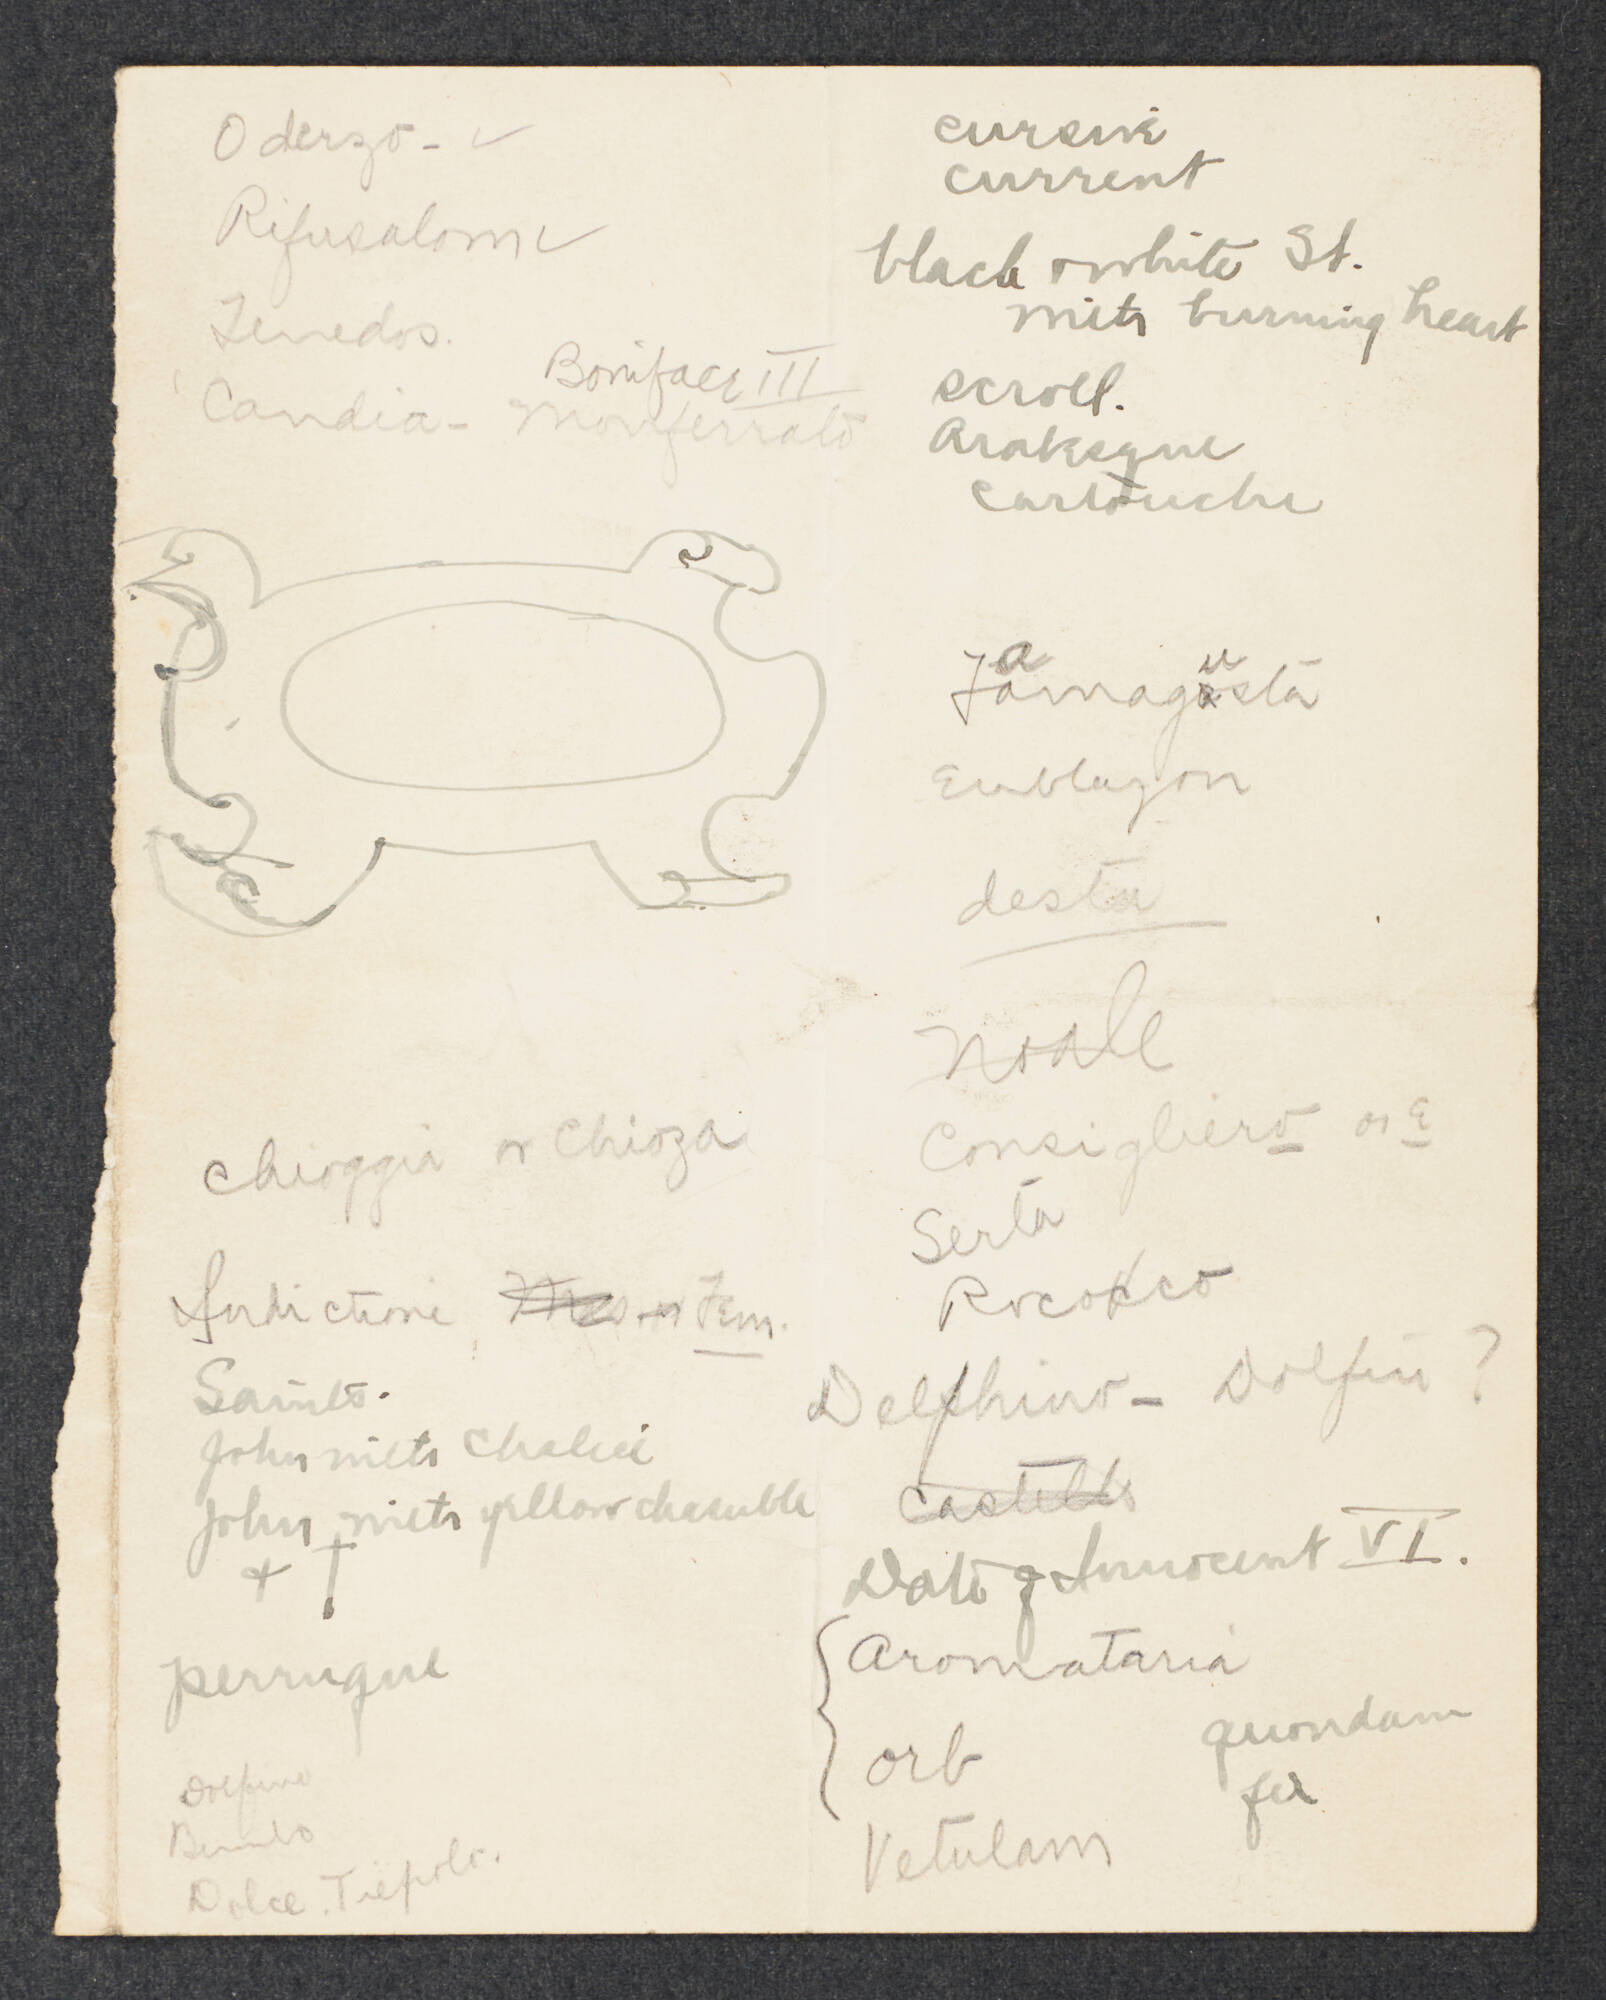 Oderzo - ✓
Rifusalom ✓
Tenedos.
Boniface III
Candia - Monferrato
Chioggia or Chioza
Indictione Fem.
Saints.
John with Chalice
John with yellow chasuble
+ †
perruque
Dolfino
Bembo
Dolce. Tiepolo.
cursive
current
black & white St.
with burning heart
scroll.
Arabesque
Cartouche
Famagusta
Emblazon
desta
Noale
Consigliero or E
Serta
Rococco
Delphino - Dolfin ?
Castello
Date of Innocent VI.
Aromataria
orb
quondam
fu
Vetulam